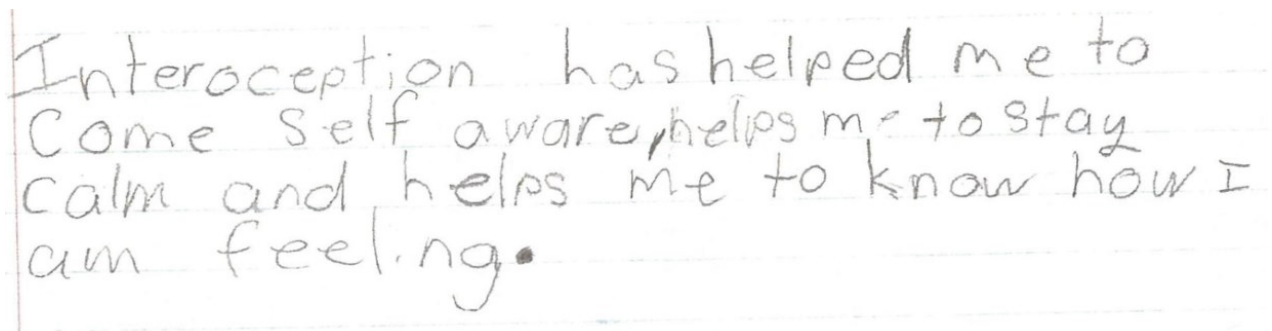 Interoception has helped me to
Come Self aware, helps me to stay
calm and helps me to know how I
am feeling.